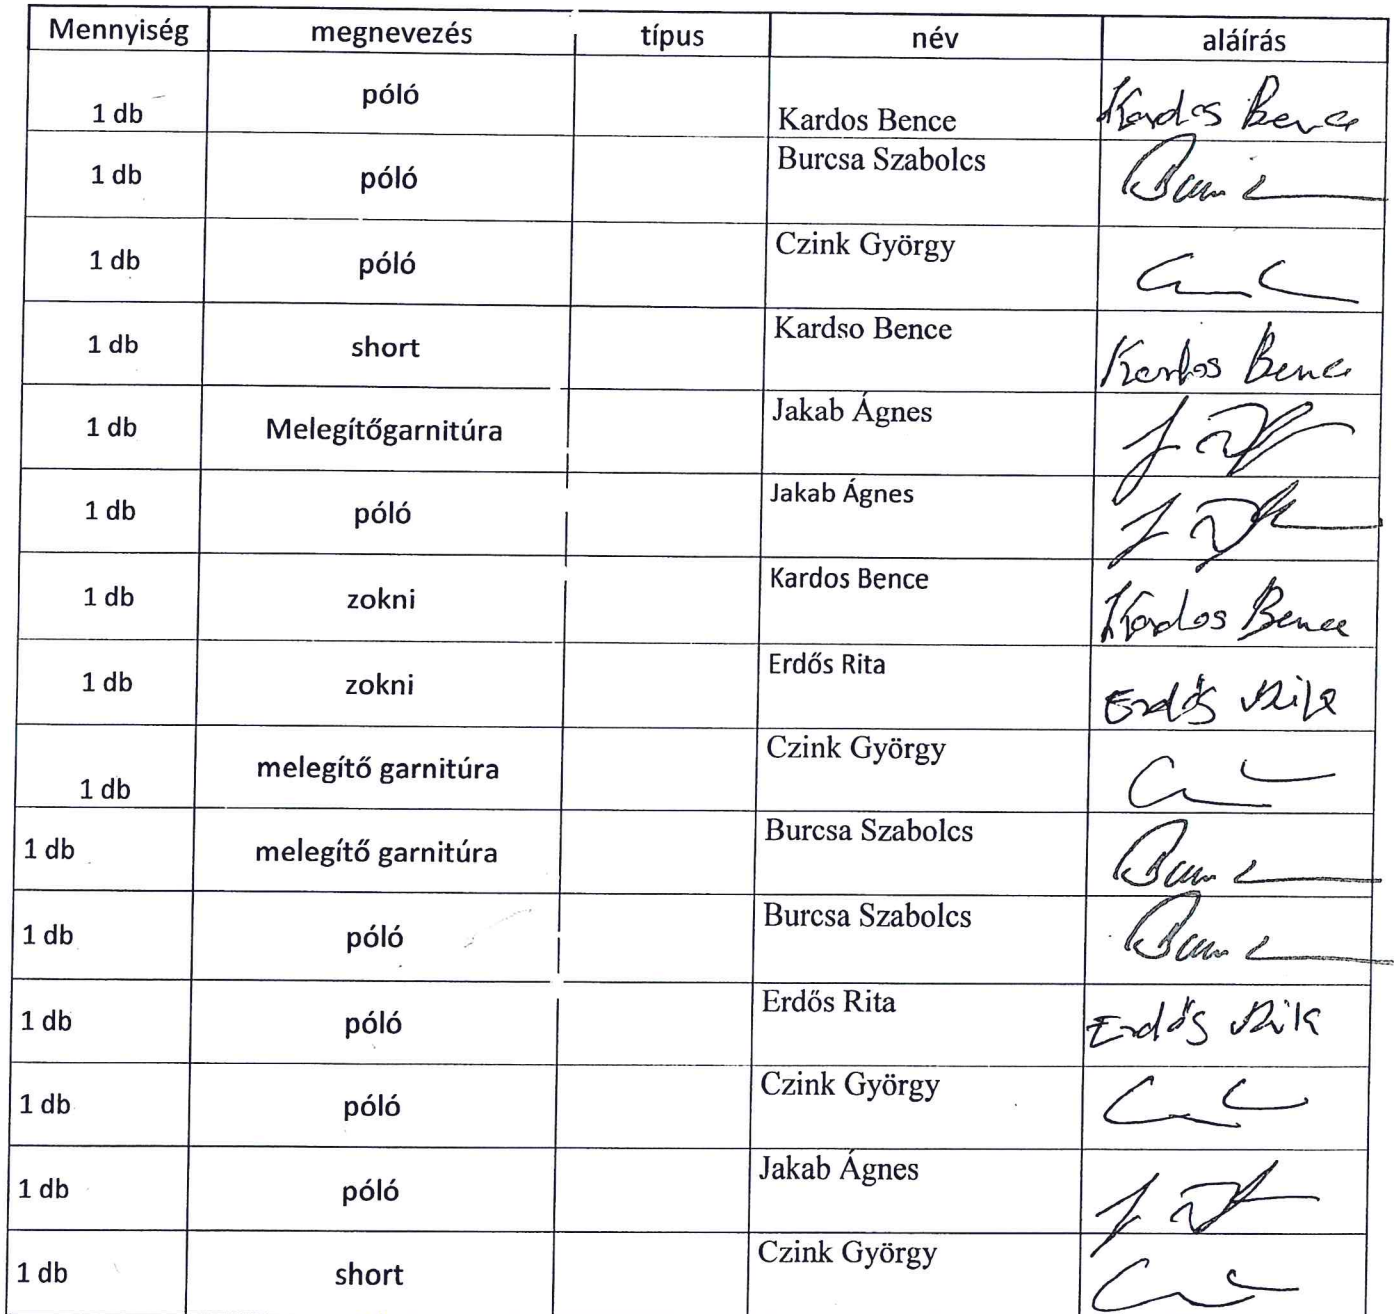 Mennyiség megnevezés típus név aláírás
1 db póló Kardos Bence Kardos Bence
1 db póló Burcsa Szabolcs
1 db póló Czink György
1 db short Kardso Bence Kardos Bence
1 db Melegítőgarnitúra Jakab Ágnes
1 db póló Jakab Ágnes
1 db zokni Kardos Bence Kardos Bence
1 db zokni Erdős Rita Erdős Rita
1 db melegítő garnitúra Czink György
1 db melegítő garnitúra Burcsa Szabolcs
1 db póló Burcsa Szabolcs
1 db póló Erdős Rita Erdős Rita
1 db póló Czink György
1 db póló Jakab Ágnes
1 db short Czink György